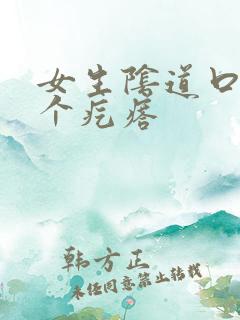 女生陰道口
个疙瘩
韩方正
未经同意禁止转载